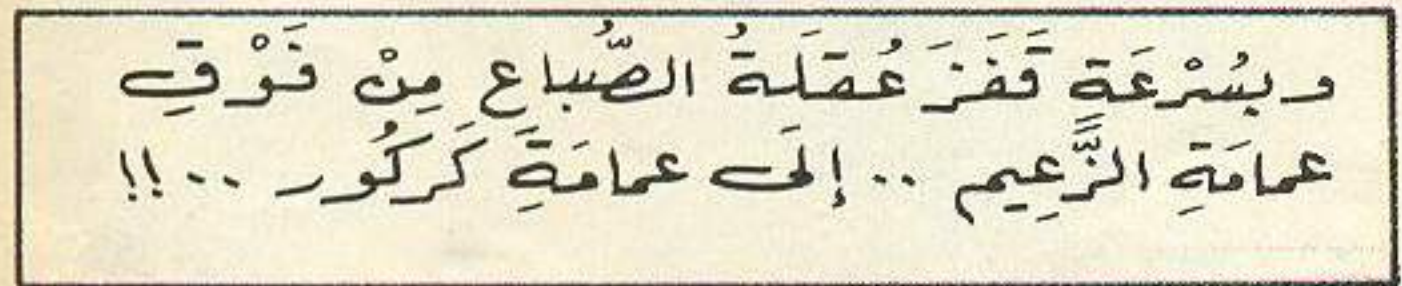 وبسُرْعَةٍ قَفَزَ عُقلَةُ الصُّباعِ مِنْ فَوْقِ
عمامَةِ الزَّعِيمِ .. إلَى عمامَةِ كَركُور ..!!